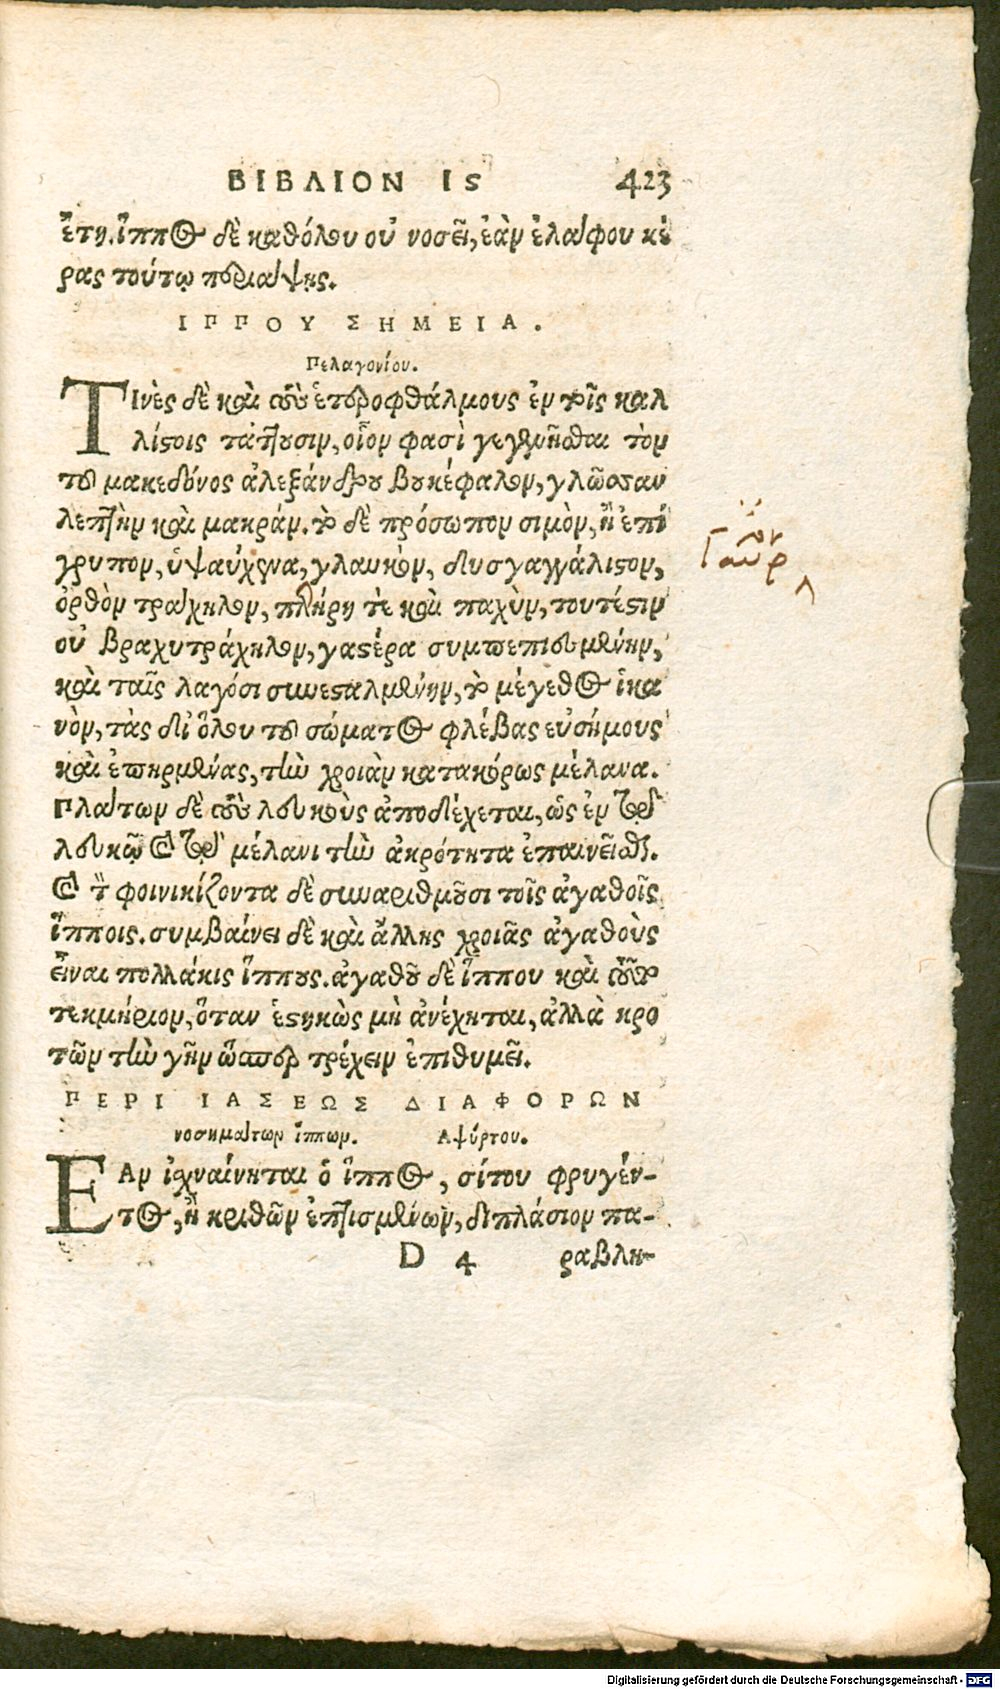 ΒΙΒΛΙΟΝ Ις 423
ἔτη. ἵππος δὲ καθόλου οὐ νοσεῖ, ἐὰν ἐλαίφου κέ
ρας τούτῳ περιαίψῃς.
ΙΠΠΟΥ ΣΗΜΕΙΑ.
Πελαγονίου.
ΤΙνὲς δὲ καὶ τοὺς ἑτεροφθάλμους ἐν τοῖς καλ
λίστοις τάττουσιν, οἷον φασὶ γεγενῆσθαι τὸν
τοῦ μακεδόνος ἀλεξάνδρου βουκέφαλον, γλῶσσαν
λεπτὴν καὶ μακράν. τὸ δὲ πρόσωπον σιμὸν, ἢ ἐπί
γρυπον, ὑψαύχενα, γλαυκὸν, δυσγαγγάλιστον,
ὀρθὸν τράχηλον, πλήρη τὲ καὶ παχὺν, τουτέστιν
οὐ βραχυτράχηλον, γαστέρα συμπεπιεσμένην,
καὶ ταῖς λαγόσι συνεσταλμένην, τὸ μέγεθος ἱκα
νὸν, τὰς δι' ὅλου τοῦ σώματος φλέβας εὐσήμους
καὶ ἐπηρμένας, τὴν χροιὰν κατακόρως μέλανα.
Πλάτων δὲ τοὺς λευκοὺς ἀποδέχεται, ὡς ἐν τῷ
λευκῷ καὶ τῷ μέλανι τὴν ἀκρότητα ἐπαινεῖσθαι.
καὶ τὸν φοινικίζοντα δὲ συναριθμοῦσι τοῖς ἀγαθοῖς
ἵπποις. συμβαίνει δὲ καὶ ἄλλης χροιᾶς ἀγαθοὺς
εἶναι πολλάκις ἵππους. ἀγαθοῦ δὲ ἵππου καὶ τοῦτο
τεκμήριον, ὅταν ἑστηκὼς μὴ ἀνέχηται, ἀλλὰ κρο
τῶν τὴν γῆν ὥσπερ τρέχειν ἐπιθυμεῖ.
ΠΕΡΙ ΙΑΣΕΩΣ ΔΙΑΦΟΡΩΝ
νοσημάτων ἵππων. Αψύρτου.
ΕΑν ἰχναίνηται ὁ ἵππος, σίτου φρυγέν-
τος, ἢ κριθῶν ἐπτισμένων, διπλάσιον πα-
D 4 ραβλη-
Digitalisierung gefördert durch die Deutsche Forschungsgemeinschaft - DFG